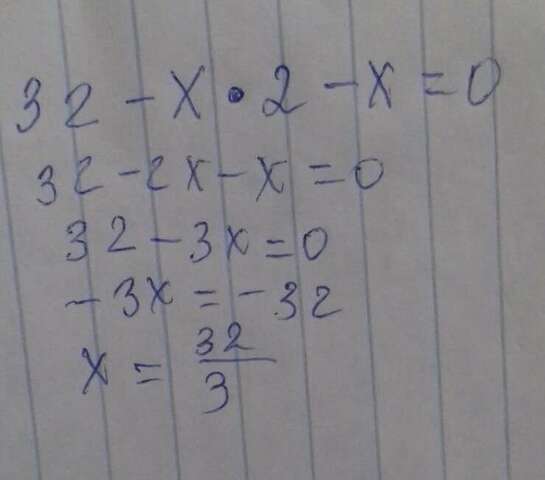 32 - x • 2 - x = 0
32 - 2x - x = 0
32 - 3x = 0
- 3x = - 32
x = 32/3